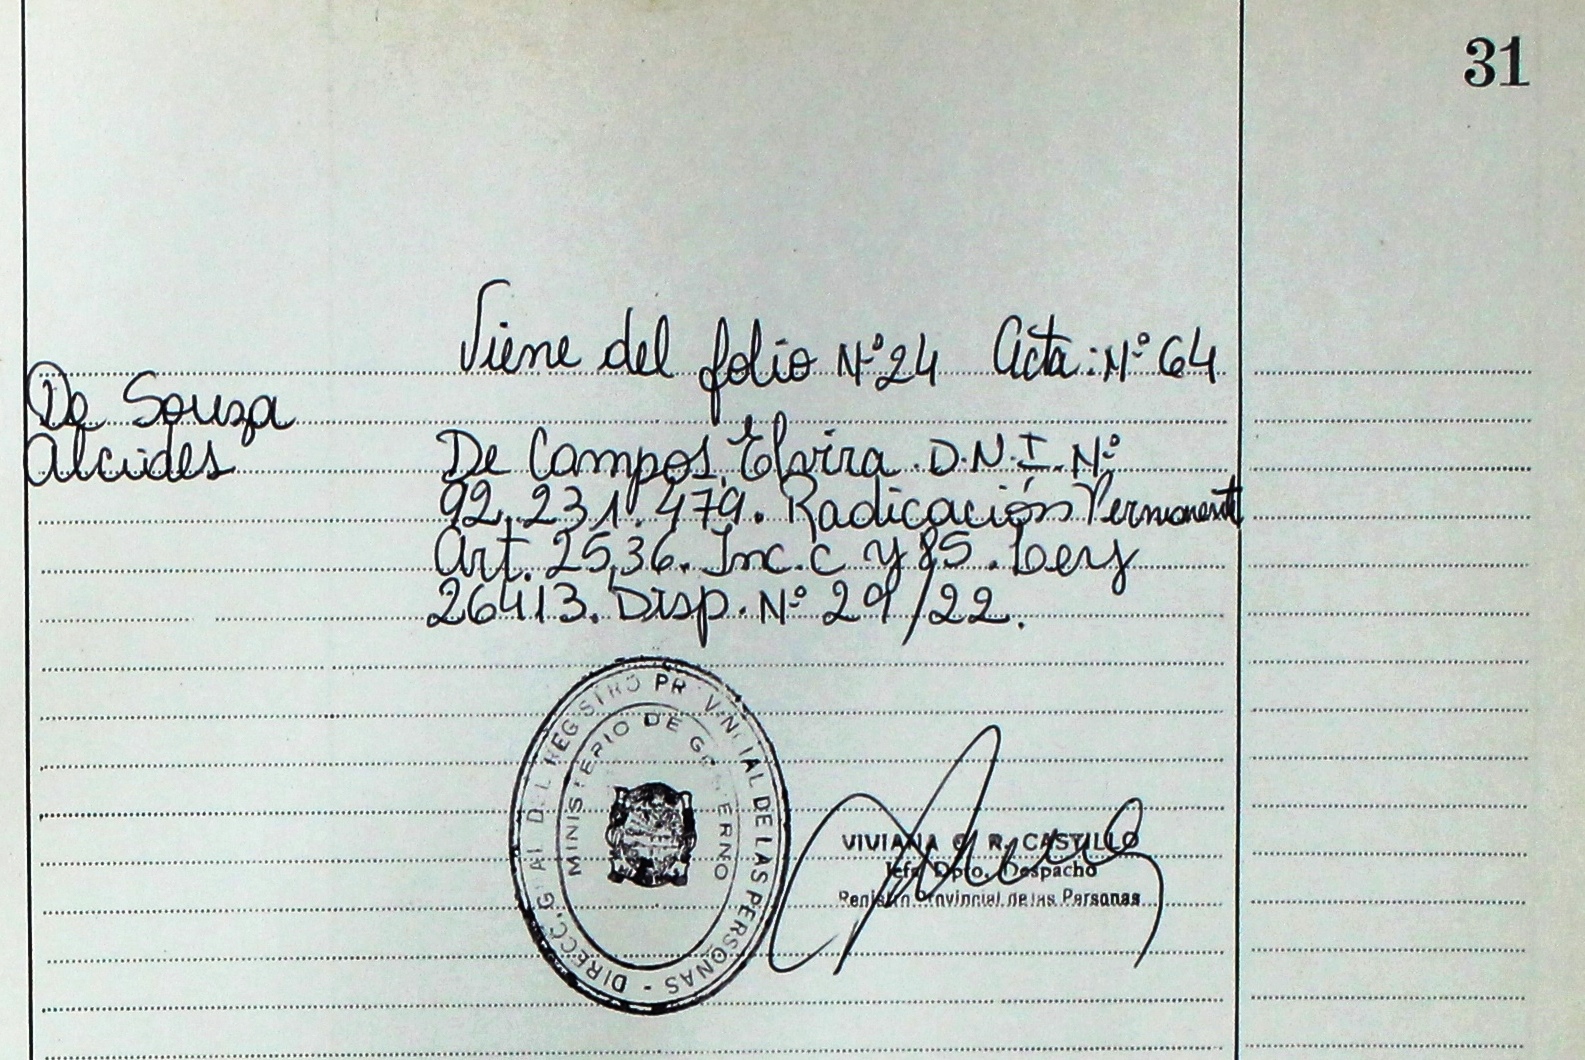 31
Viene del folio N° 24 Acta: N° 64
De Souza
Alcides
De Campos, Elvira. D.N.I. N°
92.231.479. Radicación Permanente
Art. 25,36. Inc. c y 85. Ley
26413. Disp. N° 29/22.
DIRECC. GRAL DEL REGISTRO PROVINCIAL DE LAS PERSONAS -
MINISTERIO DE GOBIERNO
VIVIANA G. R. CASTILLO
Jefa Dpto. Despacho
Registro Provincial de las Personas